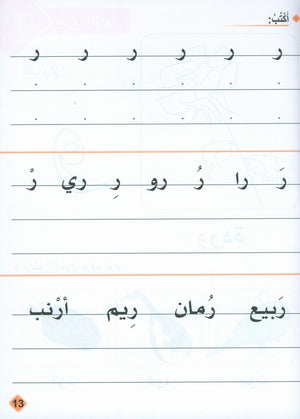 أَكْتُبُ:
ر ر ر ر ر ر
رَ را رُ رو رِ ري رْ
رَبيع رُمان رِيم أرْنب
13